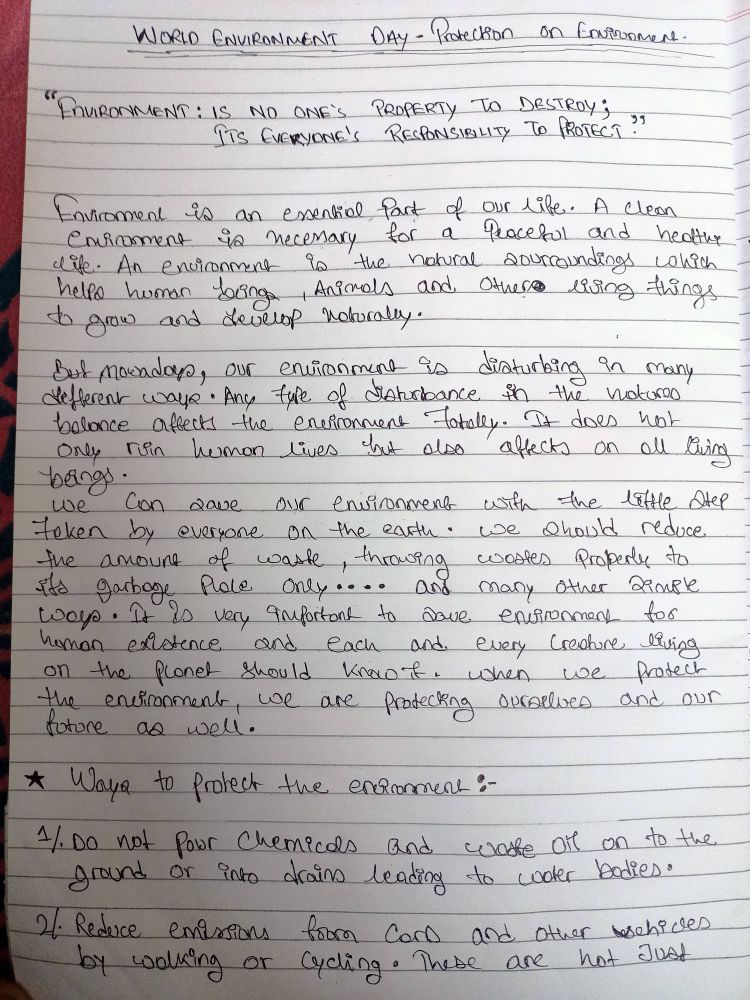 WORLD ENVIRONMENT DAY - Protection on Environment.
"ENVIRONMENT: IS NO ONE'S PROPERTY TO DESTROY;
ITS EVERYONE'S RESPONSIBILITY TO PROTECT."
Environment is an essential part of our life. A clean
environment is necessary for a peaceful and healthy
life. An environment is the natural sourroundings which
helps human beings, Animals and Other living things
to grow and develop naturally.
But nowadays, our environment is disturbing in many
different ways. Any type of disturbance in the natures
balance affects the environment totally. It does not
only ruin human lives but also affects on all living
beings.
we can save our environment with the little step
taken by everyone on the earth. we should reduce
the amount of waste, throwing wastes properly to
its garbage place only.... and many other simple
ways. It is very important to save environment for
human existence and each and every creature living
on the planet should know it. when we protect
the environment, we are protecting ourselves and our
future as well.
★ Ways to protect the environment :-
1/. Do not pour chemicals and waste oil on to the
ground or into drains leading to water bodies.
2/. Reduce emissions from cars and other vehicles
by walking or cycling. These are not Just